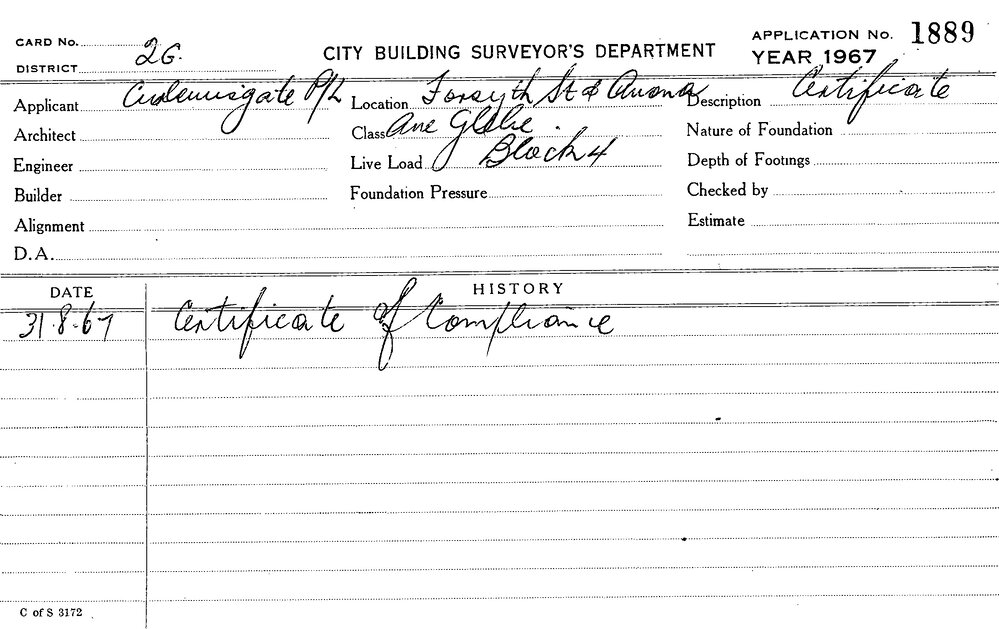 CARD No.
DISTRICT 2G.
CITY BUILDING SURVEYOR'S DEPARTMENT
APPLICATION No. 1889
YEAR 1967
Applicant P/L
Location Forsyth St & Avona
Description Certificate
Architect
Class Ave Glebe.
Nature of Foundation
Engineer
Live Load Block 4
Depth of Footings
Builder
Foundation Pressure
Checked by
Alignment
Estimate
D.A.
DATE
HISTORY
31.8.67 Certificate of Compliance
C of S 3172